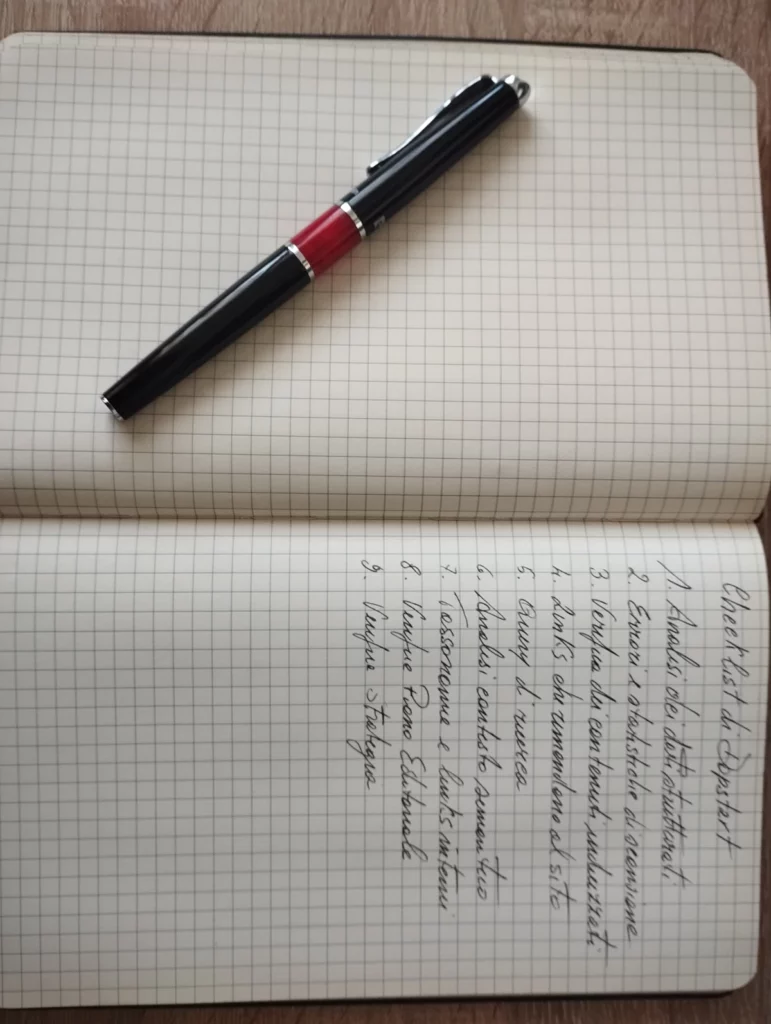 Checklist di Dopstart
1. Analisi dei dati strutturati
2. Errori e statistiche di scansione
3. Verifica dei contenuti indicizzati
4. Links che rimandano al sito
5. Query di ricerca
6. Analisi contesto semantico
7. Tassonomie e links interni
8. Verifica Piano Editoriale
9. Verifica strategia